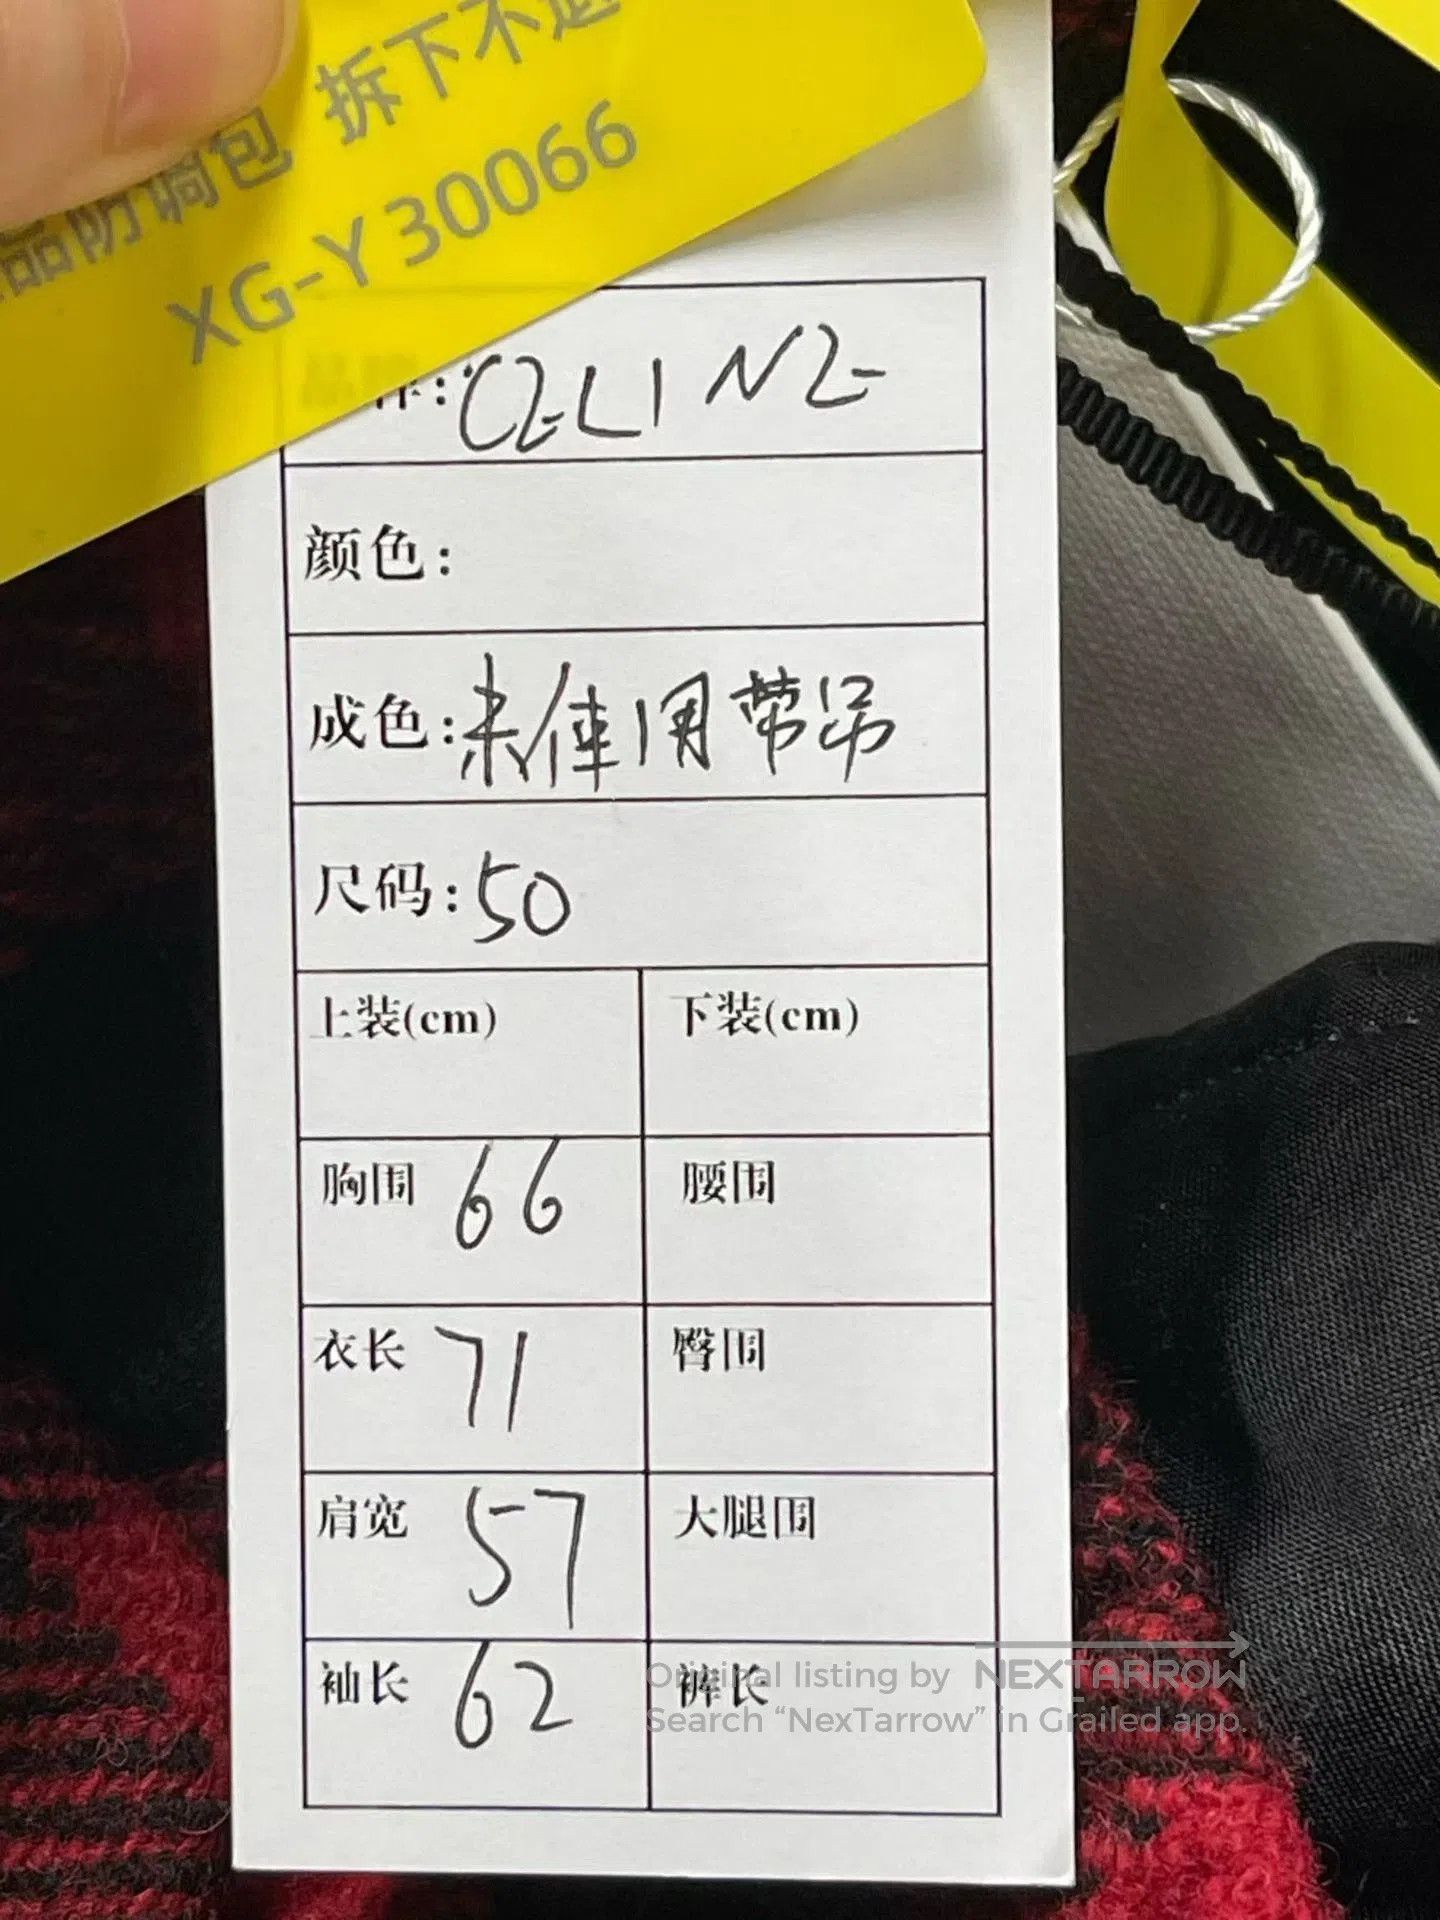 品防调包 拆下不退
XG-Y30066
牌: CELINE
颜色:
成色: 未使用带吊
尺码: 50
上装(cm) 下装(cm)
胸围 66 腰围
衣长 71 臀围
肩宽 57 大腿围
袖长 62 裤长
Original listing by NEXTARROW
Search “NexTarrow” in Grailed app.